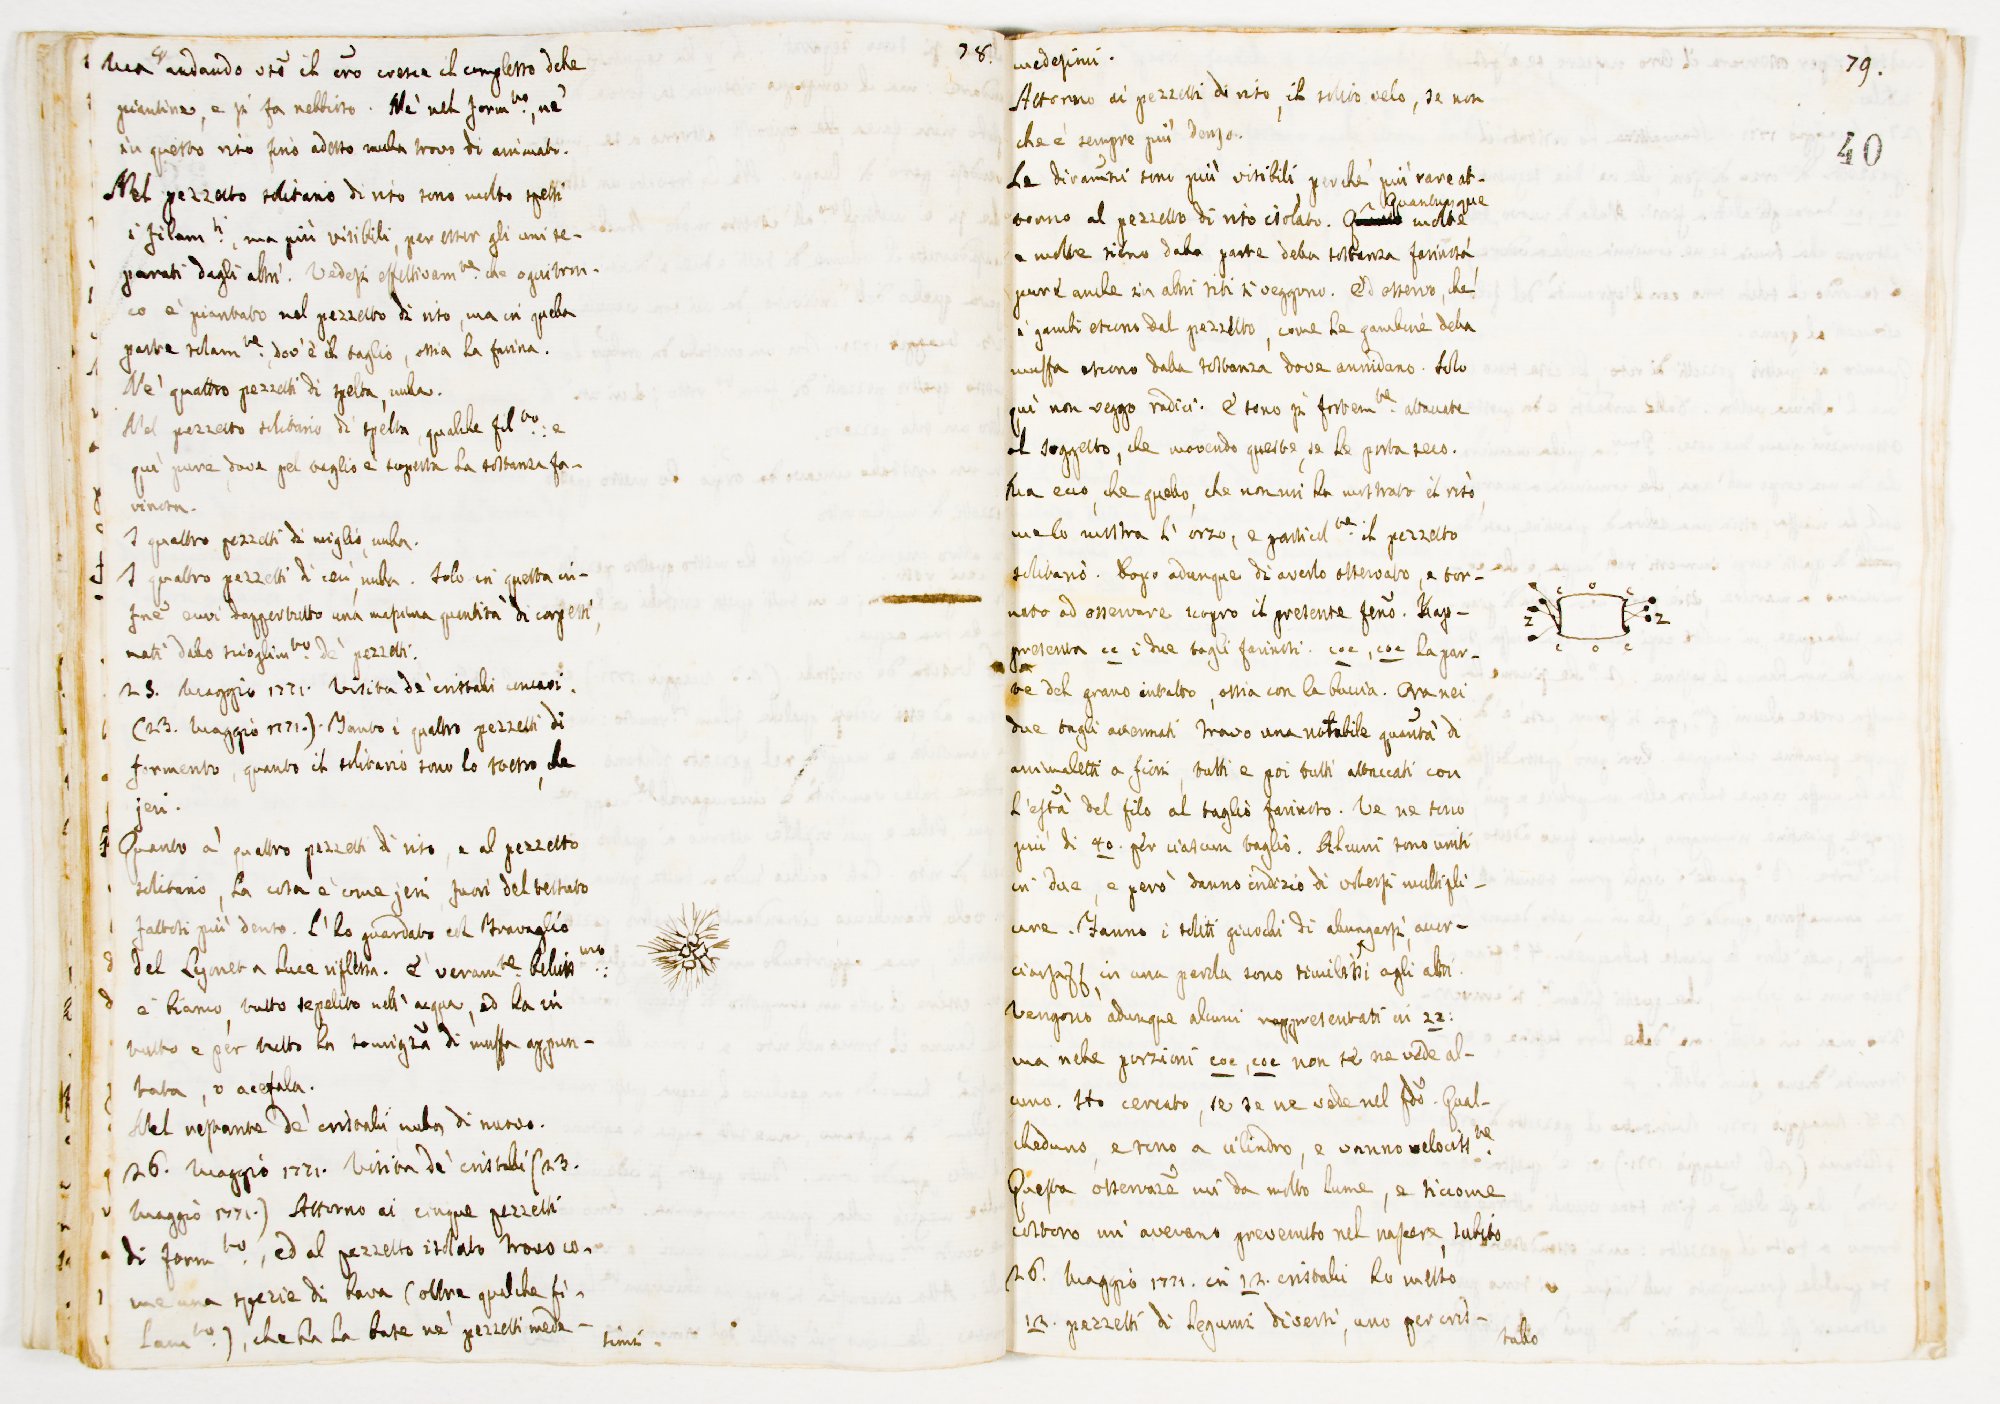 78.
Ma andando vso il cro cresce il complesso delle
piantine, e si fa nebbioso. Nè nel form.to, nè
in questo riso finò adesso nulla trovo di animati.
Nel pezzetto solitario di riso sono molto spessi
i filam.ti, ma più visibili, per esser gli uni se-
parati dagli altri. Vedesi effettivam.te che ogni tron-
co è piantato nel pezzetto di riso, ma in quella
parte solam.te, dov'è il taglio, ossia la farina.
Ne' quattro pezzetti di spelta, nulla.
Nel pezzetto solitario di spelta, qualche fil.to: e
qui pure, dove pel taglio è scoperta la sostanza fa-
rinosa.
I quattro pezzetti di miglio, nulla.
I quattro pezzetti di ceci, nulla. Solo in questa in-
fne evvi dappertutto una massima quantità di corpetti,
nati dallo scioglim.to de' pezzetti.
25. Maggio 1771. Visita de' cristalli concavi.
(23. Maggio 1771.). Tanto i quattro pezzetti di
formento, quanto il solitario sono lo stesso, che
jeri.
Quanto a' quattro pezzetti di riso, e al pezzetto
solitario, la cosa è come jeri, fuori del tessuto
fattosi più denso. L'ho guardato col Travaglio
del Lyonet a luce riflessa. È veram.te belliss.mo:
è bianco, tutto sepelito nell'acqua, ed ha in
tutto e per tutto la somigza di muffa appun-
tata, o acefala.
Nel restante de' cristalli, nulla di nuovo.
26. Maggio 1771. Visita de' cristalli (23.
Maggio 1771.) Attorno ai cinque pezzetti
di form.to, ed al pezzetto isolato trovo co-
me una spezie di bava (oltre qualche fi-
lam.to), che ha la base ne' pezzetti mede-
simi.
79.
40
medesimi.
Attorno ai pezzetti di riso, il solito velo, se non
che è sempre più denso.
Le diramni sono più visibili, perchè più rare at-
torno al pezzetto di riso isolato. Quantunque molte
e molte sieno dalla parte della sostanza farinosa
pure anche in altri siti si veggono. Ed osservo, che
i gambi escono dal pezzetto, come le gambine della
muffa escono dalla sostanza dove annidano. Solo
quì non veggo radici. E sono sì fortem.te attaccate
al soggetto, che movendo queste, se le porta seco.
Ma ecco, che quello, che non mi ha mostrato il riso,
me lo mostra l'orzo, e particol.te il pezzetto
solitario. Dopo adunque di averlo osservato, e tor-
nato ad osservare scopro il presente feno. Rap-
presenta cc i due tagli farinosi. coc, coc la par-
te del grano intatto, ossia con la buccia. Ora nei
due tagli accennati trovo una notabile quantà di
animaletti a fiori, tutti e poi tutti attaccati con
l'està del filo al taglio farinoso. Ve ne sono
più di 40. per ciascun taglio. Alcuni sono uniti
in due, e però danno indizio di volersi multipli-
care. Fanno i soliti giuochi di allungarsi, accor-
ciarsi, in una parola sono similissi agli altri.
Vengono adunque alcuni rappresentati in zz:
ma nelle porzioni coc, coc non se ne vede al-
cuno. Ho cercato, se se ne vede nel fdo. Qual-
cheduno, e sono a cilindro, e vanno velociss.te
Questa osservazne mi da molto lume, e siccome
costoro mi avevano prevenuto nel nascere, subito
26. Maggio 1771. in 12. cristalli ho messo
12. pezzetti di legumi diversi, uno per cris-
tallo
c o c
z z
c o c